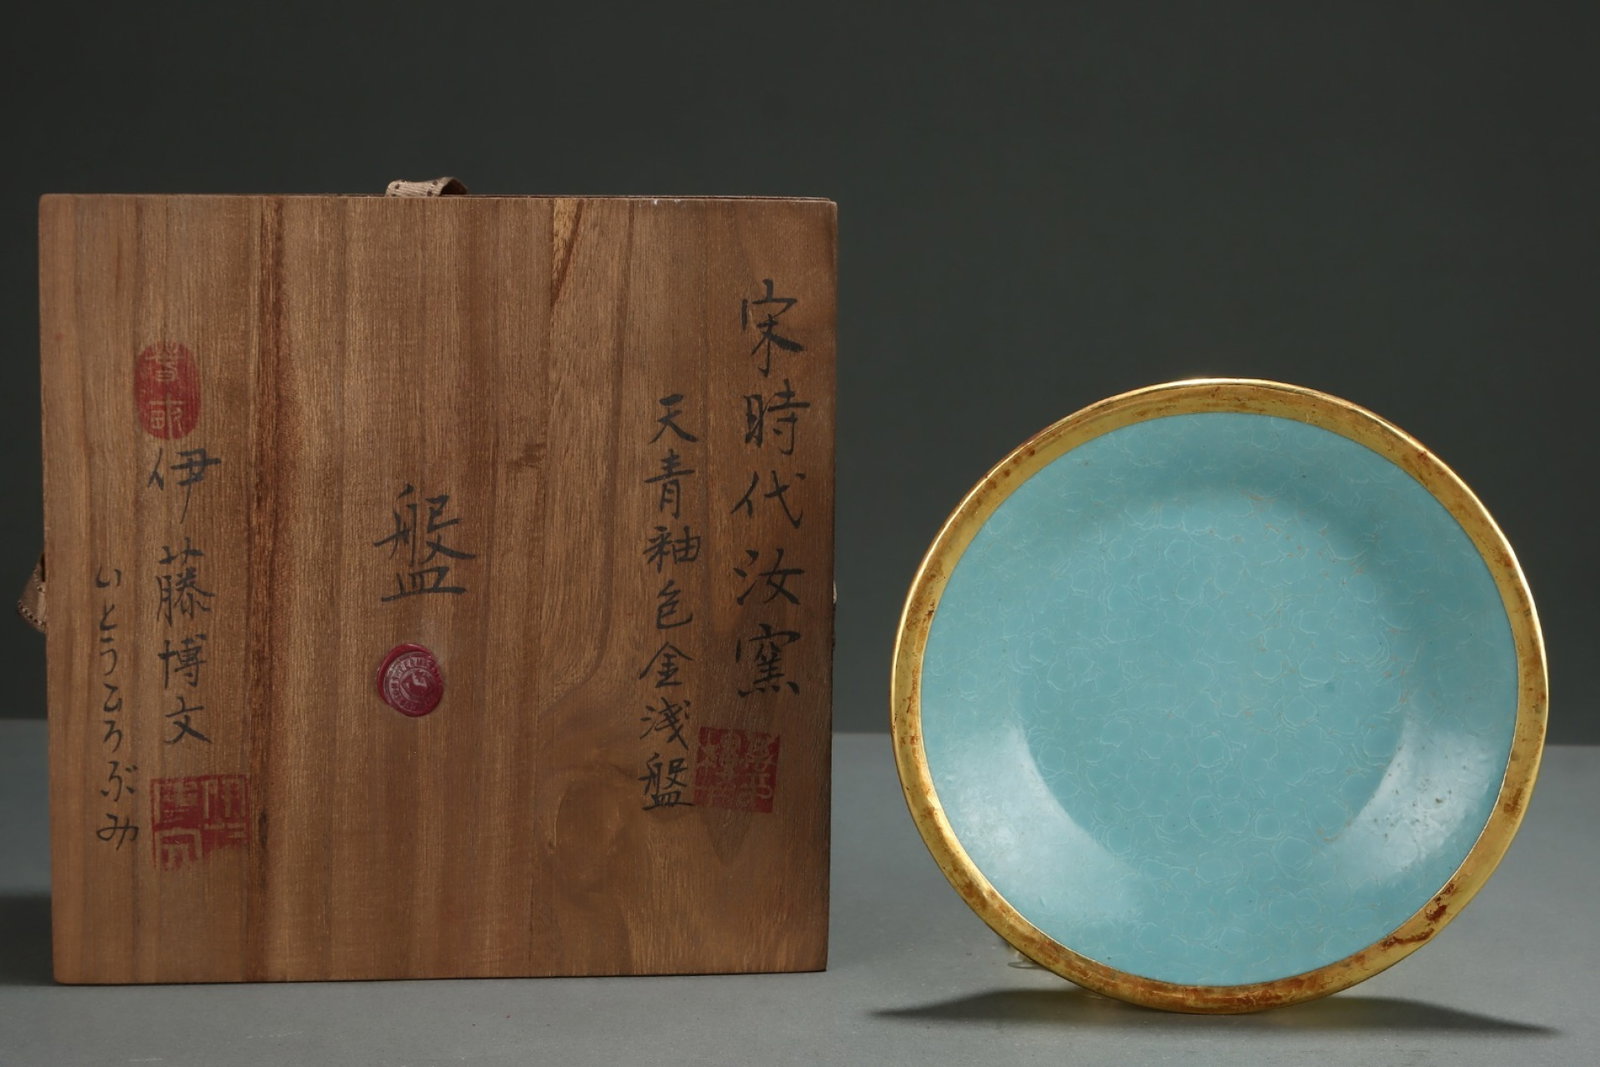 宋時代汝窯
天青袖色金淺盤
盤
伊藤博文
いとうひろぶみ